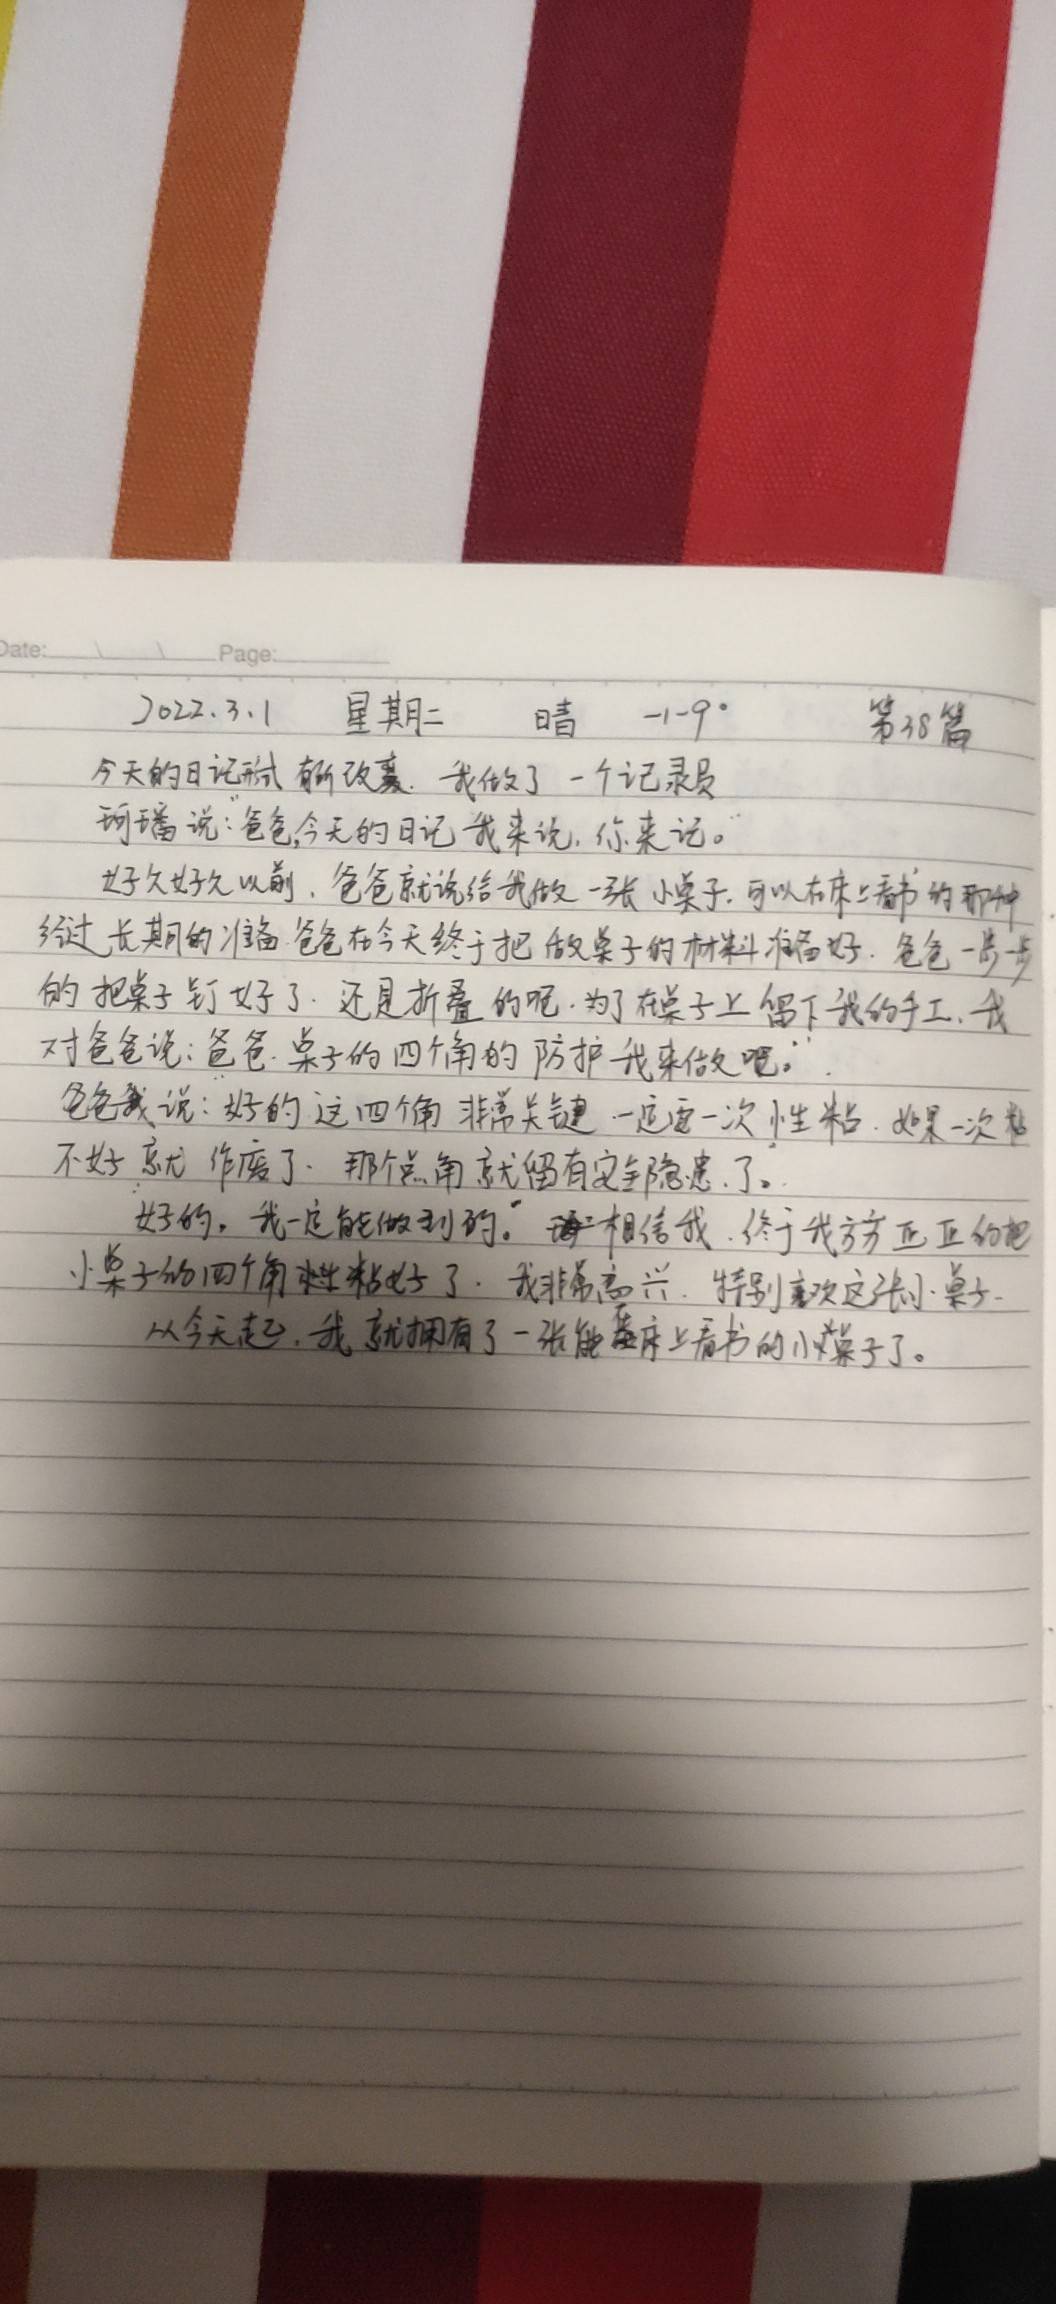 Date: \ \ Page:
2022.3.1 星期二 晴 -1-9° 第38篇
今天的日记形式有所改变.我做了一个记录员
珂璠说:"爸爸,今天的日记我来说,你来记。"
好久好久以前,爸爸就说给我做一张小桌子.可以在床上看书的那种
经过长期的准备.爸爸在今天终于把做桌子的材料准备好.爸爸一步一步
的把桌子钉好了.还是折叠的呢.为了在桌子上留下我的手工,我
对爸爸说:爸爸.桌子的四个角的防护我来做吧。"
爸爸说:"好的这四个角非常关键.一定要一次性粘.如果一次粘
不好就作废了.那个角就留有安全隐患了。"
"好的。我一定能做到的。"相信我.终于我方方正正的把
小桌子的四个角粘好了.我非常高兴.特别喜欢这张小桌子.
从今天起,我就拥有了一张能在床上看书的小桌子了。